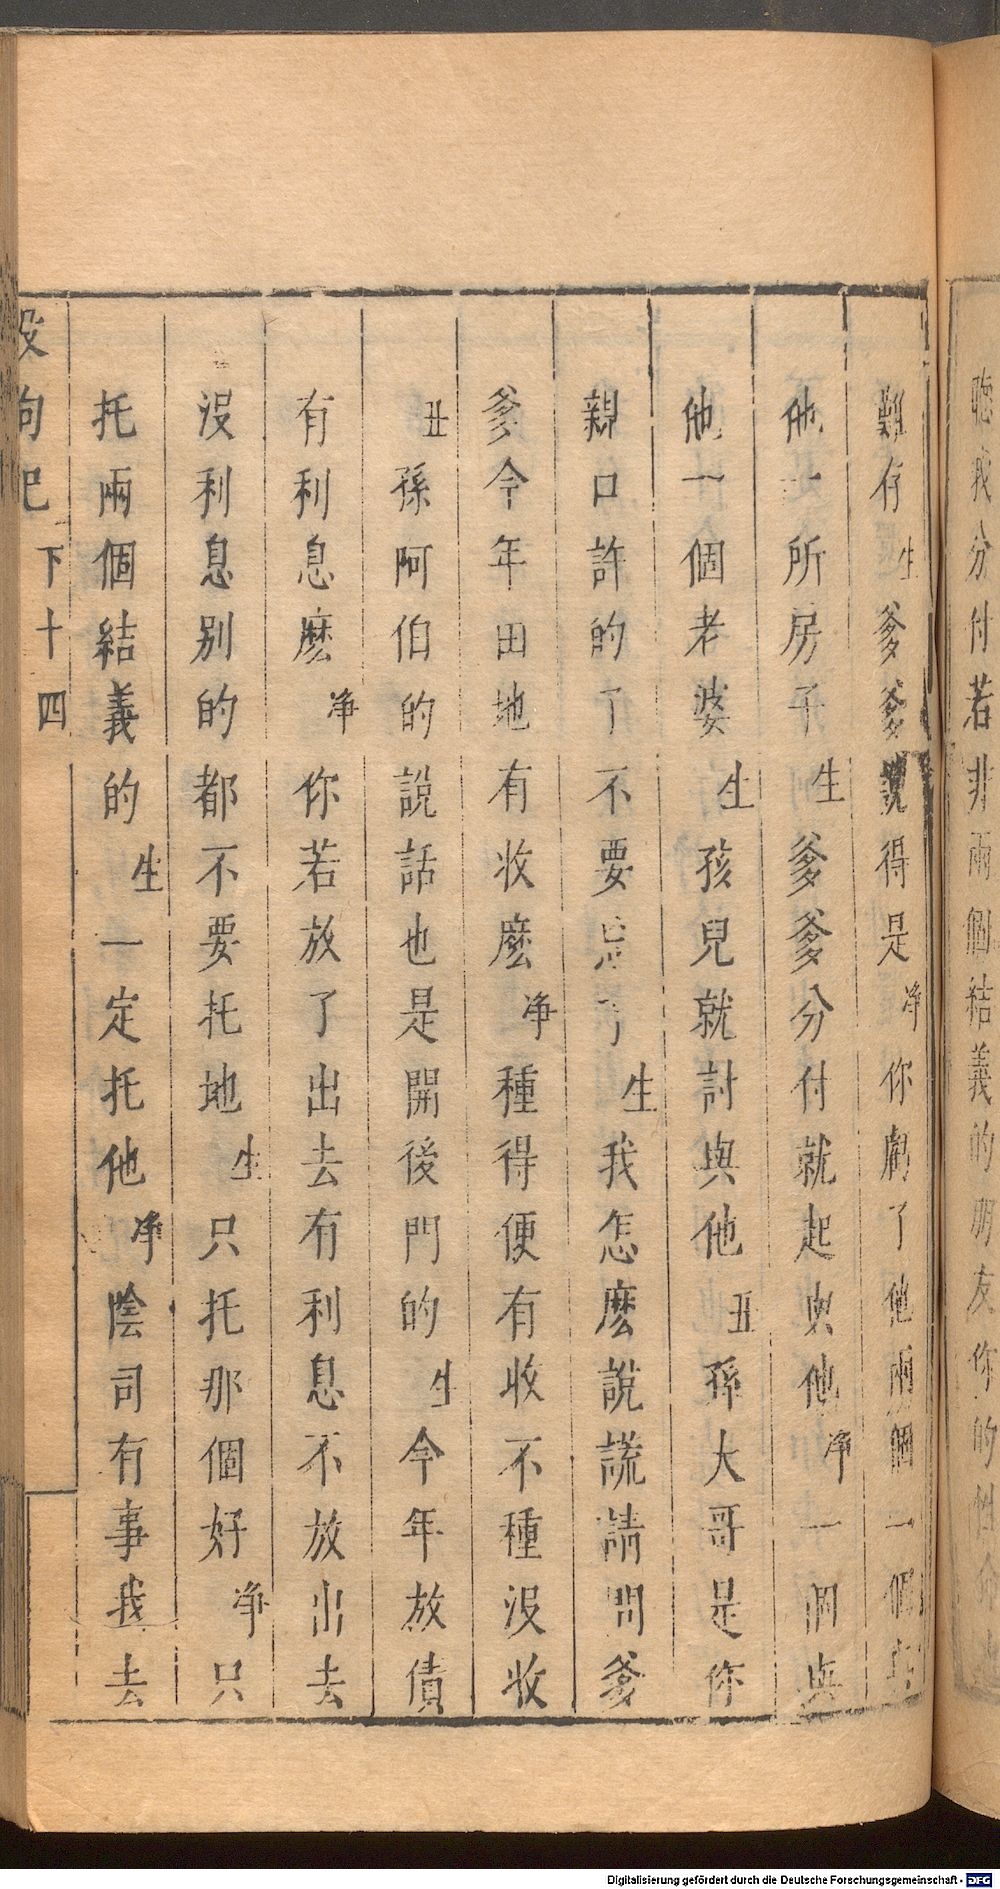 聴我分付若非兩個結義的朋友你的性命
難存生爹爹說得是净你虧了他兩個一個
他一所房子生爹爹分付就起與他净一個與
他一個老婆生孩兒就討與他丑孫大哥是你
親口許的了不要忘了生我怎麽說謊請問爹
爹今年田地有收麽净種得便有收不種没收
丑孫阿伯的說話也是開後門的生今年放債
有利息麽净你若放了出去有利息不放出去
没利息别的都不要托地生只托那個好净只
托兩個結義的生一定托他净陰司有事我去
殺狗記 下十四
Digitalisierung gefördert durch die Deutsche Forschungsgemeinschaft - DFG